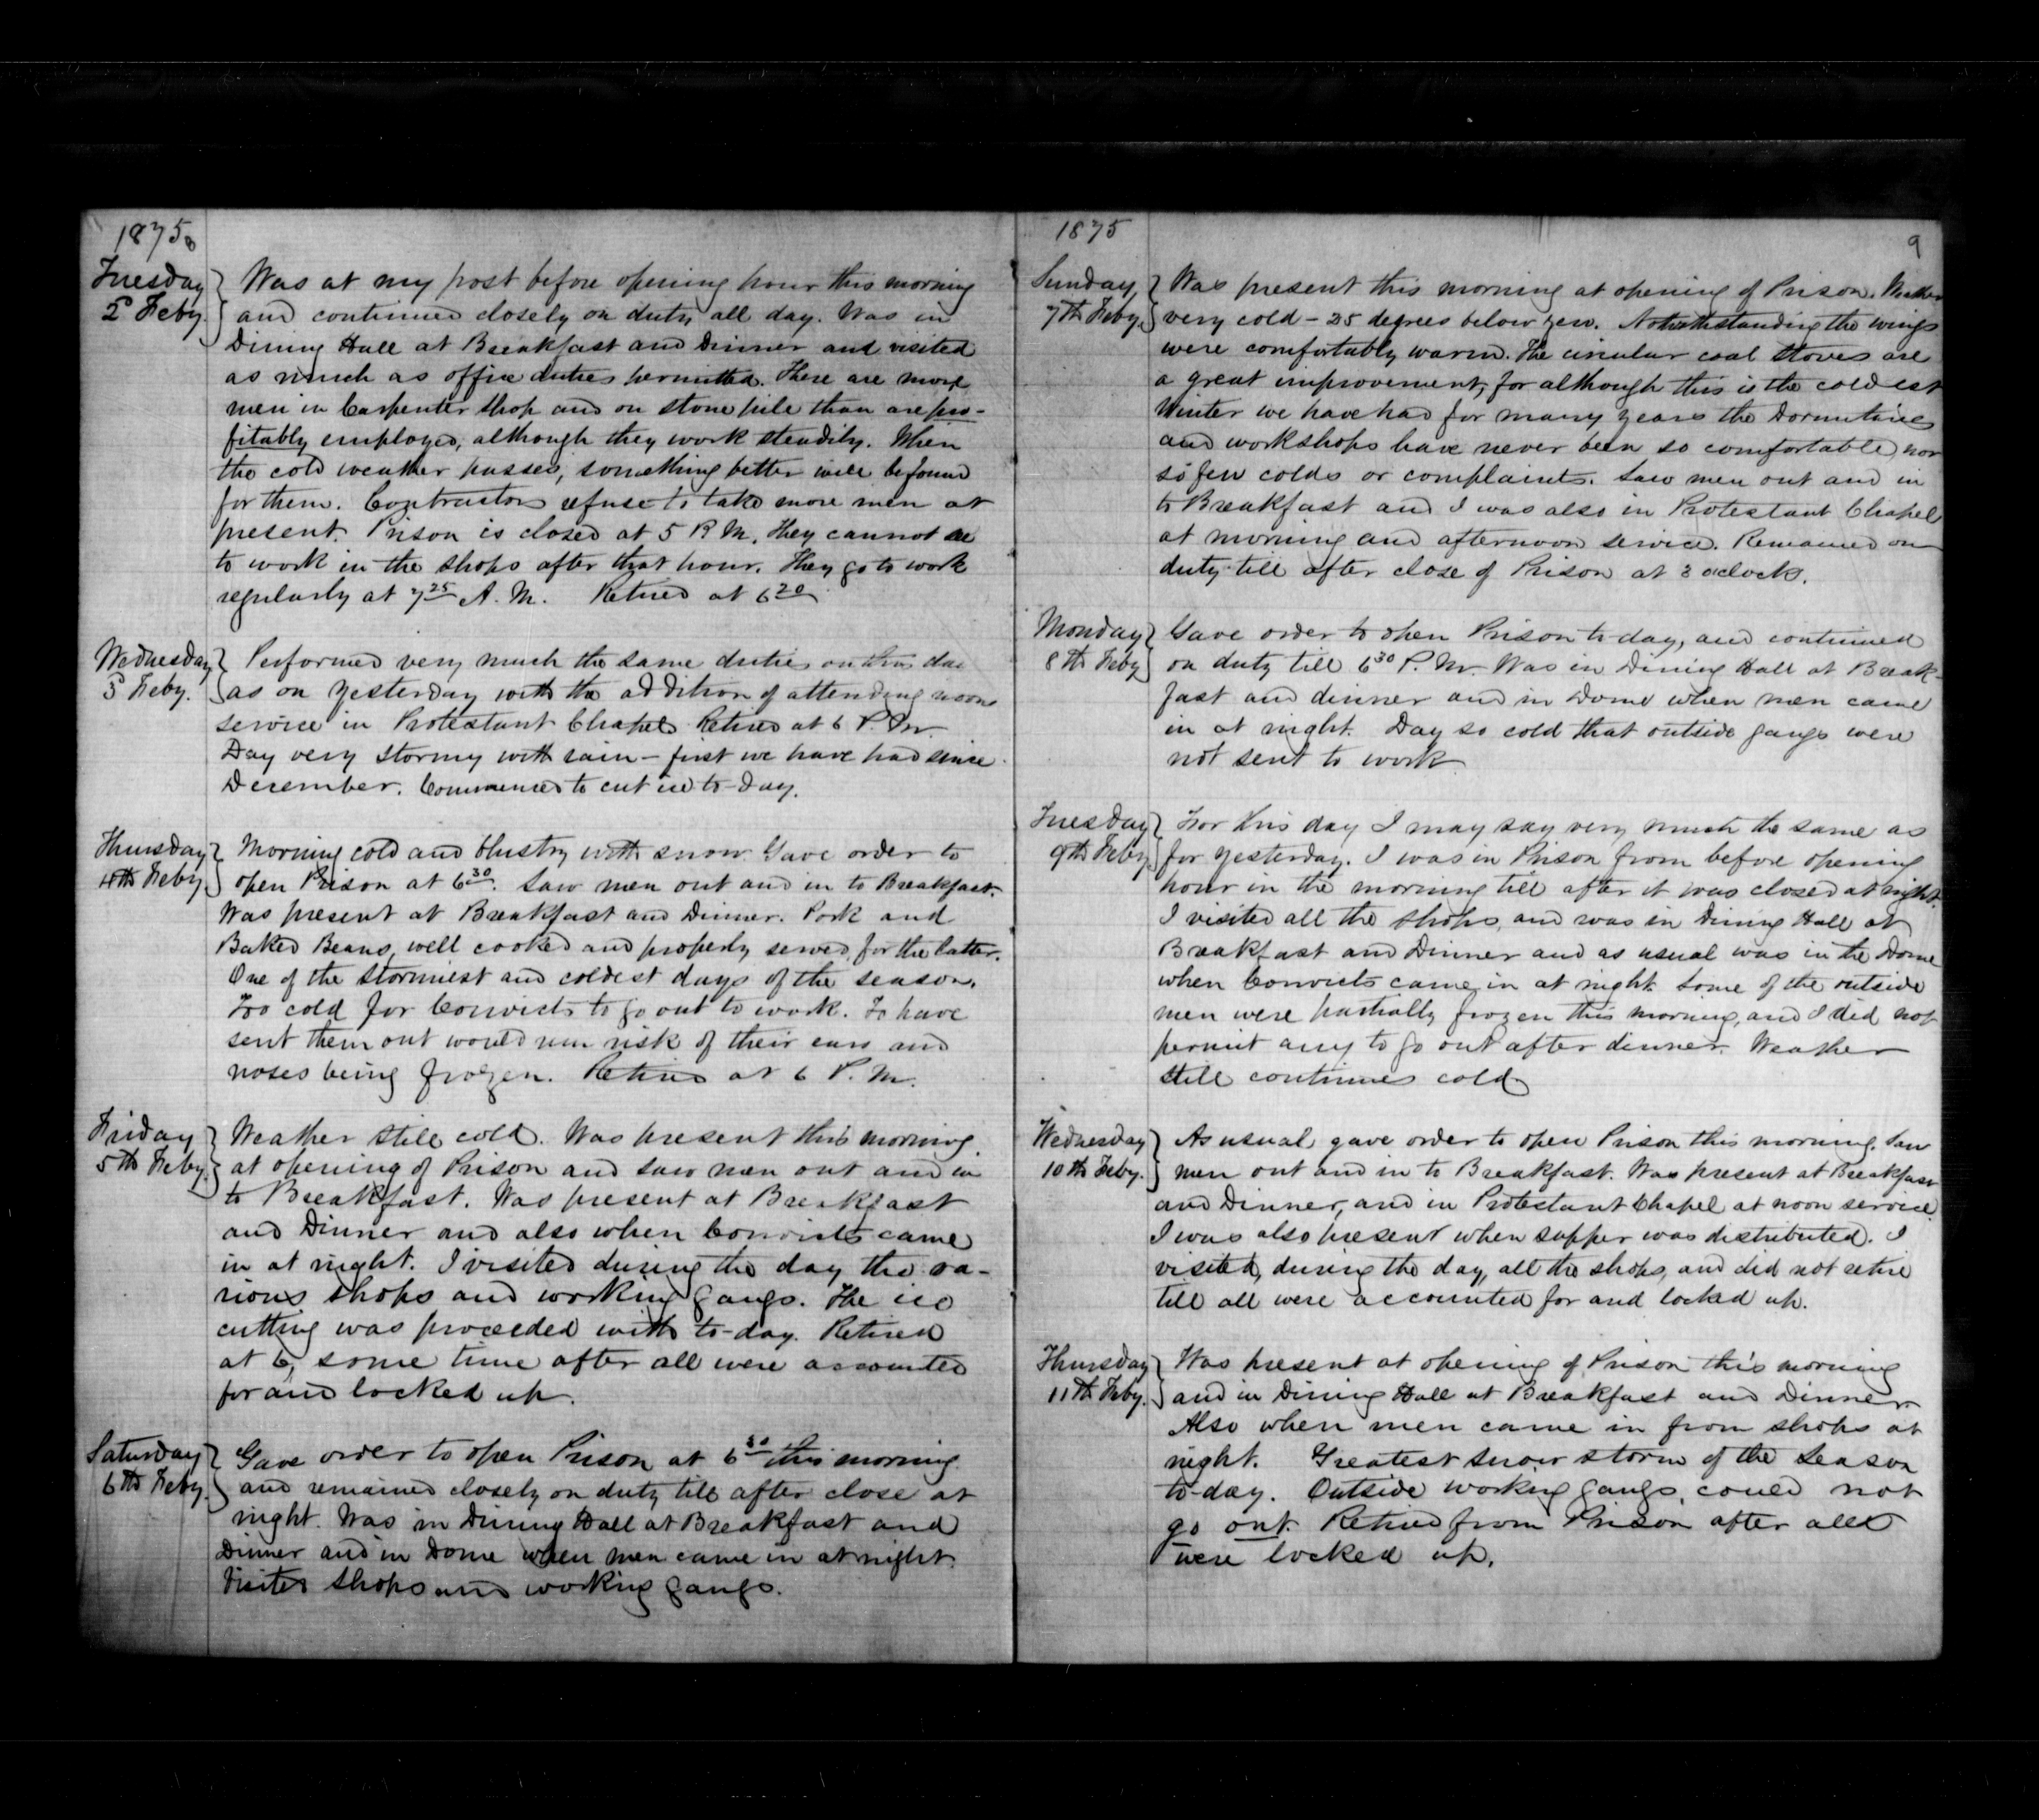 1875
8
Tuesday
2d Feby.
Was at my post before opening hour this morning
and continued closely on duty all day. Was in
Dining Hall at Breakfast and Dinner and visited
as much as office duties permitted. There are more
men in Carpenter Shop and on stone pile than are pro-
fitably employed, although they work steadily. When
the cold weather passes, something better will be found
for them. Contractors refuse to take more men at
present. Prison is closed at 5 P.M. They cannot see
to work in the shops after that hour. They go to work
regularly at 7 25 A.M. Retired at 6 20
Wednesday
3d Feby.
Performed very much the same duties on this day
as on yesterday with the addition of attending noon
service in Protestant Chapel. Retired at 6 P.M.
Day very stormy with rain – first we have had since
December. Commenced to cut ice to-day.
Thursday
4th Feby.
Morning cold and blustry with snow. Gave order to
open Prison at 6 30. Saw men out and in to Breakfast.
Was present at Breakfast and Dinner. Pork and
Baked Beans, well cooked and properly served, for the latter.
One of the stormiest and coldest days of the season.
Too cold for Convicts to go out to work. To have
sent them out would run risk of their ears and
noses being frozen. Retired at 6 P.M.
Friday
5th Feby.
Weather still cold. Was present this morning
at opening of Prison and saw men out and in
to Breakfast. Was present at Breakfast
and Dinner and also when Convicts came
in at night. I visited during the day the va-
rious shops and working gangs. The ice
cutting was proceeded with to-day. Retired
at 6, some time after all were accounted
for and locked up.
Saturday
6th Feby.
Gave order to open Prison at 6 30 this morning
and remained closely on duty till after close at
night. Was in Dining Hall at Breakfast and
Dinner and in Dome when men came in at night.
Visited shops and working gangs.
1875
9
Sunday
7th Feby.
Was present this morning at opening of Prison. Weather
very cold – 25 degrees below zero. Notwithstanding the wings
were comfortably warm. The circular coal stoves are
a great improvement, for although this is the coldest
Winter we have had for many years the Dormitories
and workshops have never been so comfortable nor
so few colds or complaints. Saw men out and in
to Breakfast and I was also in Protestant Chapel
at morning and afternoon service. Remained on
duty till after close of Prison at 3 oclock.
Monday
8th Feby
Gave order to open Prison to-day, and continued
on duty till 6 30 P.M. Was in Dining Hall at Break-
fast and dinner and in Dome when men came
in at night. Day so cold that outside gangs were
not sent to work
Tuesday
9th Feby
For this day I may say very much the same as
for yesterday. I was in Prison from before opening
hour in the morning till after it was closed at night.
I visited all the shops, and was in Dining Hall at
Breakfast and Dinner and as usual was in the Dome
when Convicts came in at night. Some of the outside
men were partially frozen this morning, and I did not
permit any to go out after dinner. Weather
still continues cold
Wednesday
10th Feby.
As usual gave order to open Prison this morning. Saw
men out and in to Breakfast. Was present at Breakfast
and Dinner, and in Protestant Chapel at noon service.
I was also present when supper was distributed. I
visited, during the day, all the shops, and did not retire
till all were accounted for and locked up.
Thursday
11th Feby.
Was present at opening of Prison this morning
and in Dining Hall at Breakfast and Dinner
Also when men came in from shops at
night. Greatest snow storm of the Season
to-day. Outside working gangs, could not
go out. Retired from Prison after all
were locked up.